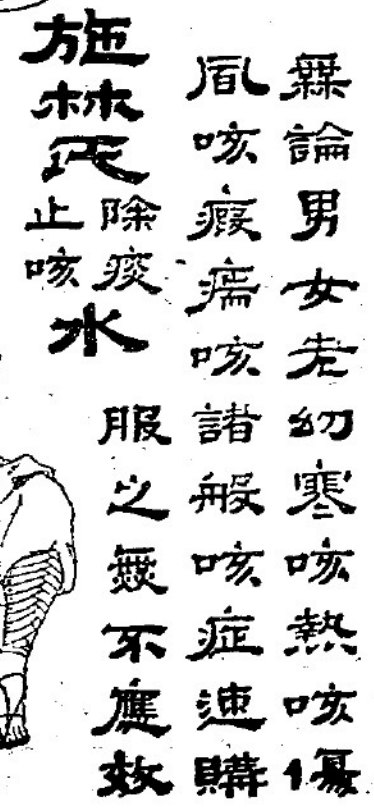 無論男女老幼寒咳熱咳傷
風咳瘕咳諸般咳症速購
施林氏
除痰
止咳
水
服之無不應效